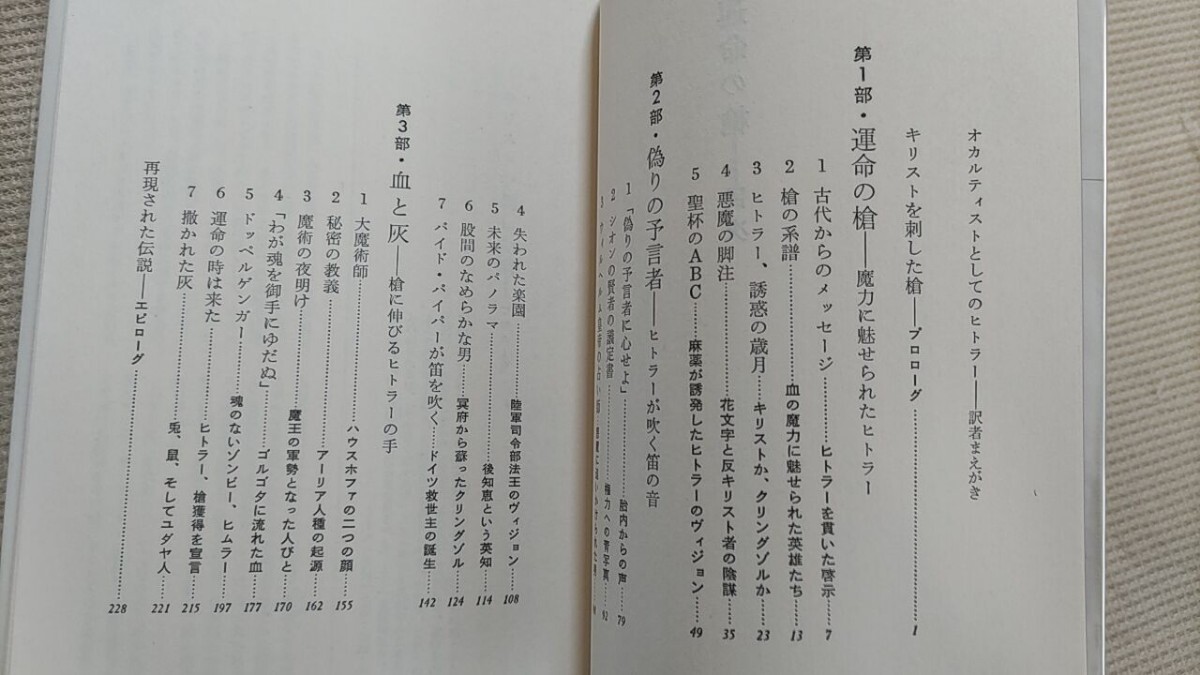 オカルティストとしてのヒトラー——訳者まえがき
キリストを刺した槍——プロローグ……1
第1部・運命の槍——魔力に魅せられたヒトラー
1 古代からのメッセージ……ヒトラーを貫いた啓示……7
2 槍の系譜……血の魔力に魅せられた英雄たち……13
3 ヒトラー、誘惑の歳月……キリストか、クリングゾルか……23
4 悪魔の脚注……花文字と反キリスト者の陰謀……35
5 聖杯のABC……麻薬が誘発したヒトラーのヴィジョン……49
第2部・偽りの予言者——ヒトラーが吹く笛の音
1 「偽りの予言者に心せよ」……胎内からの声……79
2 シオンの賢者の議定書……権力への青写真……92
4 失われた楽園……陸軍司令部法王のヴィジョン……108
5 未来のパノラマ……後知恵という英知……114
6 股間のなめらかな男……冥府から蘇ったクリングゾル……124
7 パイド・パイパーが笛を吹く……ドイツ救世主の誕生……142
第3部・血と灰——槍に伸びるヒトラーの手
1 大魔術師……ハウスホファの二つの顔……155
2 秘密の教義……アーリア人種の起源……162
3 魔術の夜明け……魔王の軍勢となった人びと……170
4 「わが魂を御手にゆだぬ」……ゴルゴタに流れた血……177
5 ドッペルゲンガー……魂のないゾンビー、ヒムラー……197
6 運命の時は来た……ヒトラー、槍獲得を宣言……215
7 撒かれた灰……兎、鼠、そしてユダヤ人……221
再現された伝説——エピローグ……228